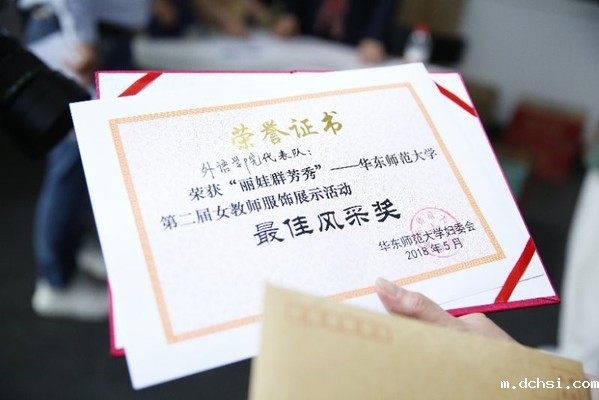 荣誉证书
外语学院代表队：
荣获“丽娃群芳秀”——华东师范大学
第二届女教师服饰展示活动
最佳风采奖
华东师范大学妇委会
2018年5月
m.dchsi.com